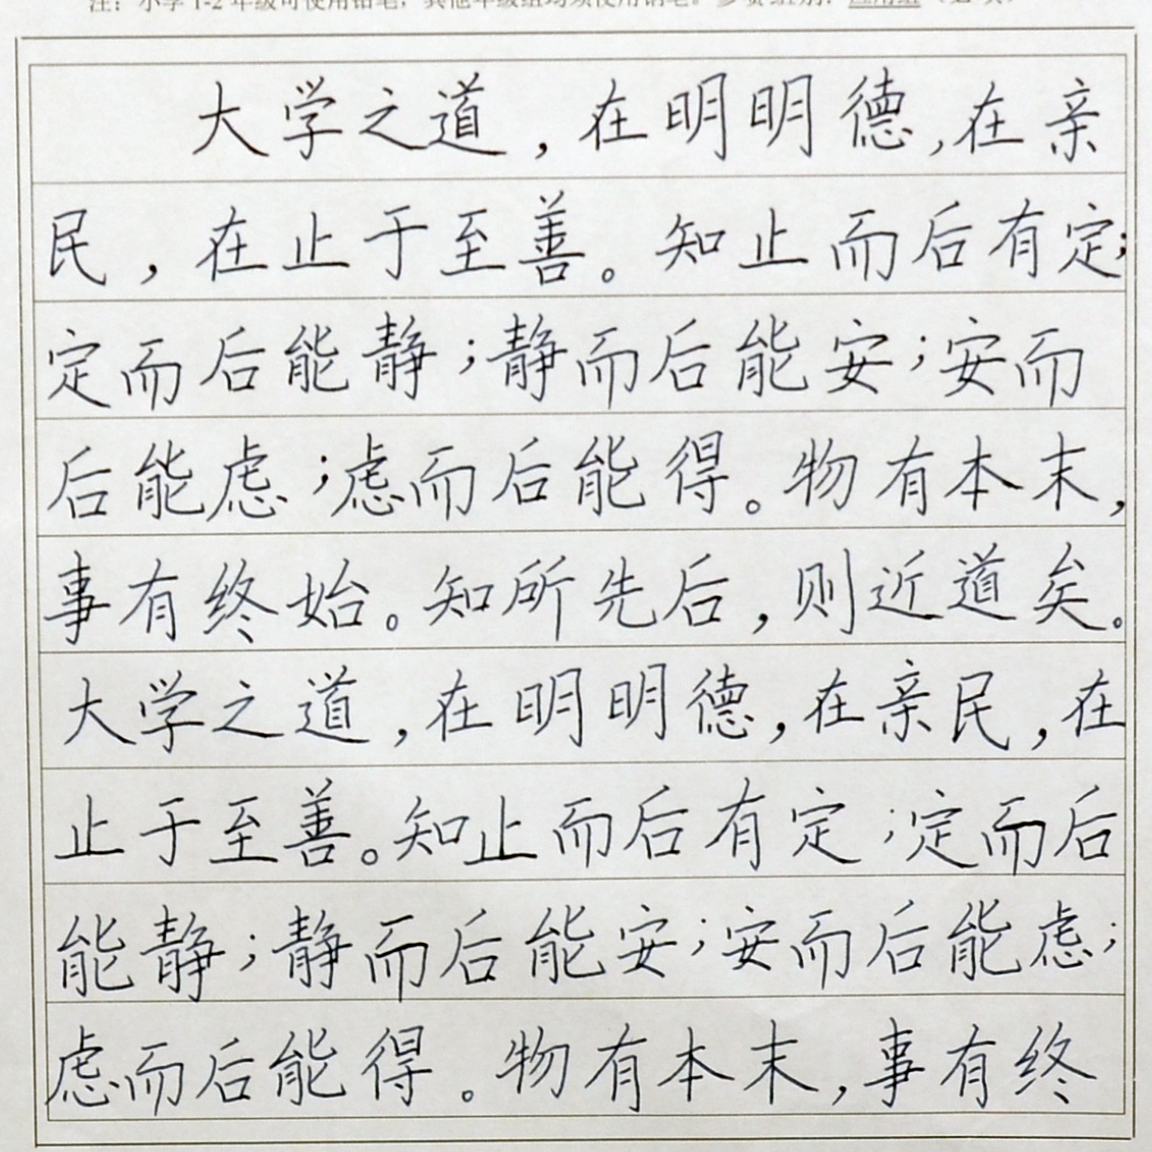 注：小学1-2年级可使用铅笔，其他年级组均须使用钢笔。参赛组别：
大学之道，在明明德，在亲
民，在止于至善。知止而后有定；
定而后能静；静而后能安；安而
后能虑；虑而后能得。物有本末，
事有终始。知所先后，则近道矣。
大学之道，在明明德，在亲民，在
止于至善。知止而后有定；定而后
能静；静而后能安；安而后能虑；
虑而后能得。物有本末，事有终